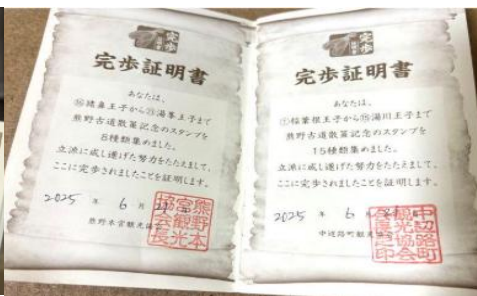 完歩
完歩証明書
あなたは、
⑯猪鼻王子から㉓湯峯王子まで
熊野古道散策記念のスタンプを
8種類集めました。
立派に成し遂げた努力をたたえまして、
ここに完歩されましたことを証明します。
2025 年 6 月
熊野本宮観光協会
熊野本
宮観光
協会長
完歩
完歩証明書
あなたは、
①稲葉根王子から⑮湯川王子まで
熊野古道散策記念のスタンプを
15種類集めました。
立派に成し遂げた努力をたたえまして、
ここに完歩されましたことを証明します。
2025 年 6 月
中辺路町観光協会
中辺路町
観光協会